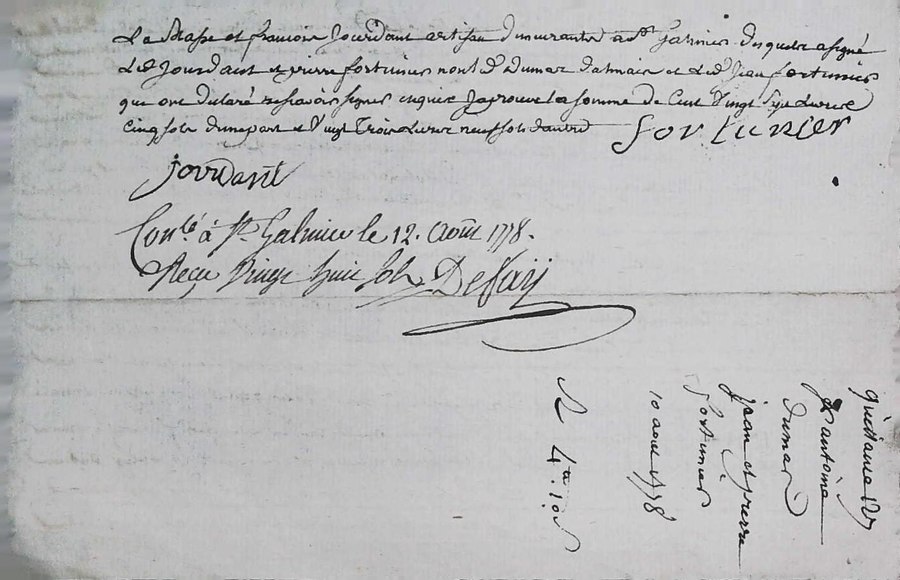 La Rasse et francois Jourdant artisan demeurants a St Galmier desquels a signé
Led Jourdant et pierre fortunier non led Dumas dalmais et led Jean fortunier
que ont déclaré ne sçavoir signer enquis Japrouve la somme de Cent Vingt Sept Livres
Cinq sols d'une part et Vingt Trois Livres neuf sols dautre for tunier
jourdant
Con.lé à St Galmier le 12. Août 1778.
Reçu Vingt huit sols Defay
quittance 127
antoine
Dumas
jean et pierre
fortunier
10 aout 1778
4tt 10s